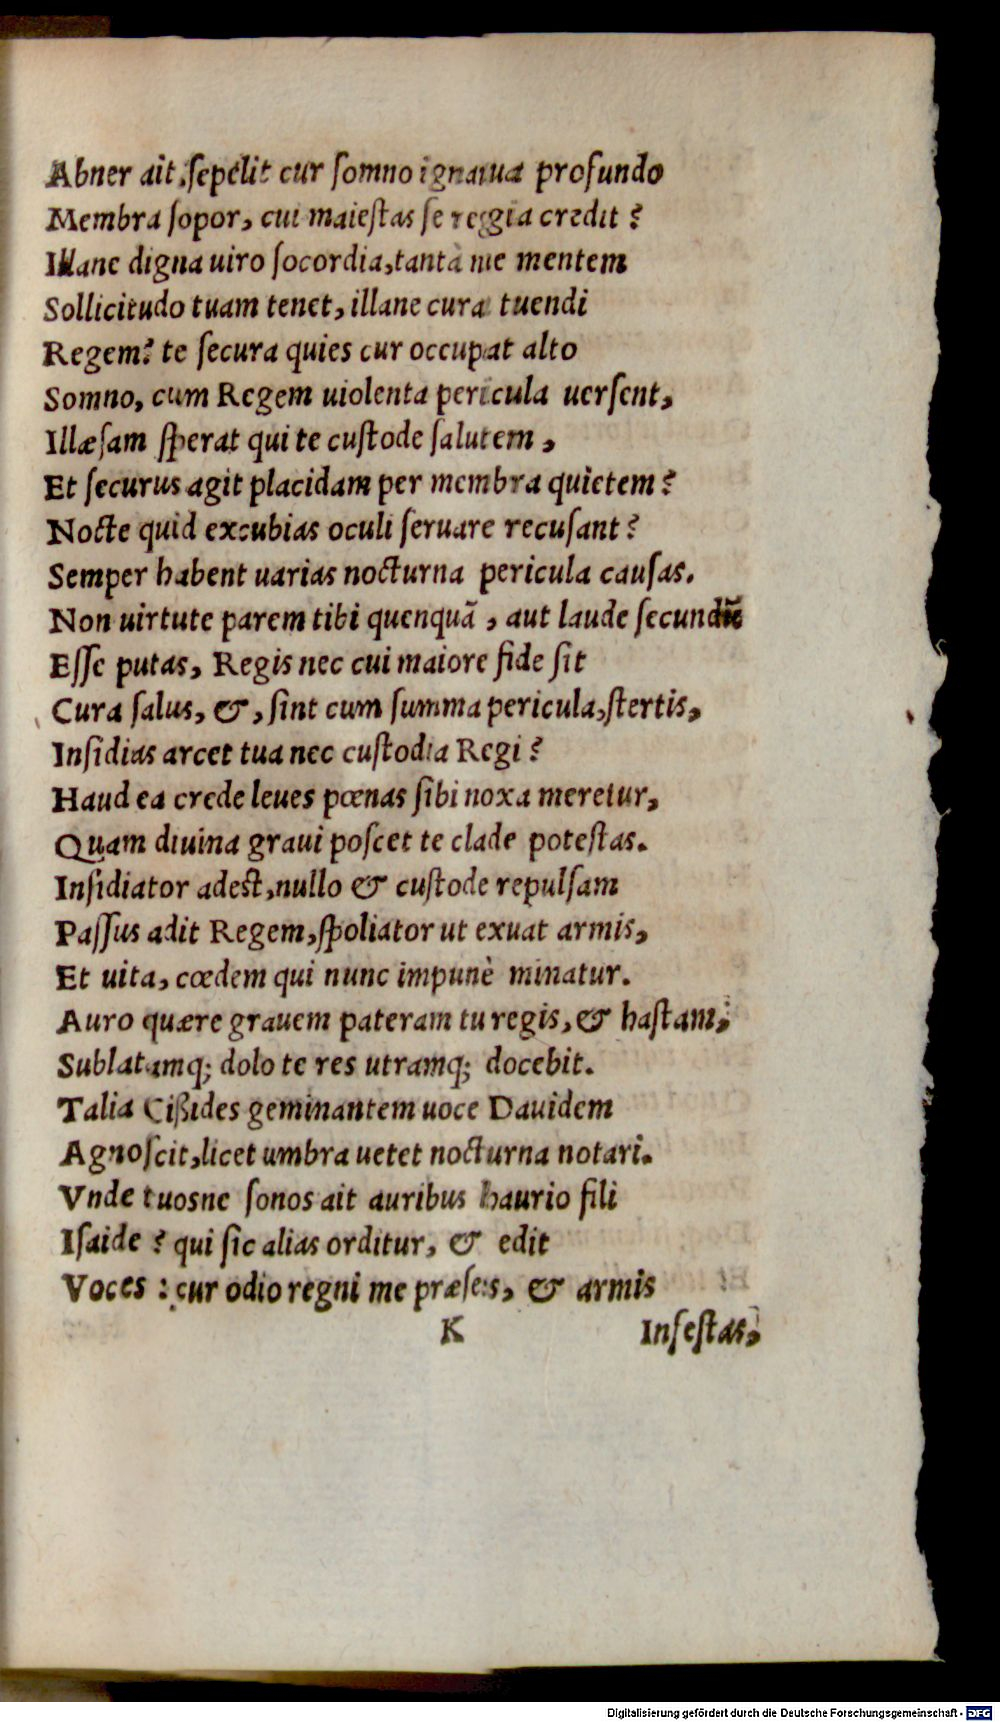 Abner ait, ſepelit cur ſomno ignaua profundo
Membra ſopor, cui maieſtas ſe reggia credit?
Illane digna uiro ſocordia, tantà ne mentem
Sollicitudo tuam tenet, illane cura tuendi
Regem? te ſecura quies cur occupat alto
Somno, cum Regem uiolenta pericula uerſent,
Illæſam ſperat qui te cuſtode ſalutem,
Et ſecurus agit placidam per membra quietem?
Nocte quid excubias oculi ſeruare recuſant?
Semper habent uarias nocturna pericula cauſas.
Non uirtute parem tibi quenquã, aut laude ſecundũ
Eſſe putas, Regis nec cui maiore fide ſit
Cura ſalus, &, ſint cum ſumma pericula, ſtertis,
Inſidias arcet tua nec cuſtodia Regi?
Haud ea crede leues pœnas ſibi noxa meretur,
Quam diuina graui poſcet te clade poteſtas.
Inſidiator adeſt, nullo & cuſtode repulſam
Paſſus adit Regem, ſpoliator ut exuat armis,
Et uita, cœdem qui nunc impunè minatur.
Auro quære grauem pateram tu regis, & haſtam,
Sublatamq; dolo te res utramq; docebit.
Talia Cißides geminantem uoce Dauidem
Agnoſcit, licet umbra uetet nocturna notari.
Vnde tuosne ſonos ait auribus haurio fili
Iſaide? qui ſic alias orditur, & edit
Voces: cur odio regni me præſes, & armis
K
Infeſtas,
Digitalisierung gefördert durch die Deutsche Forschungsgemeinschaft - DFG